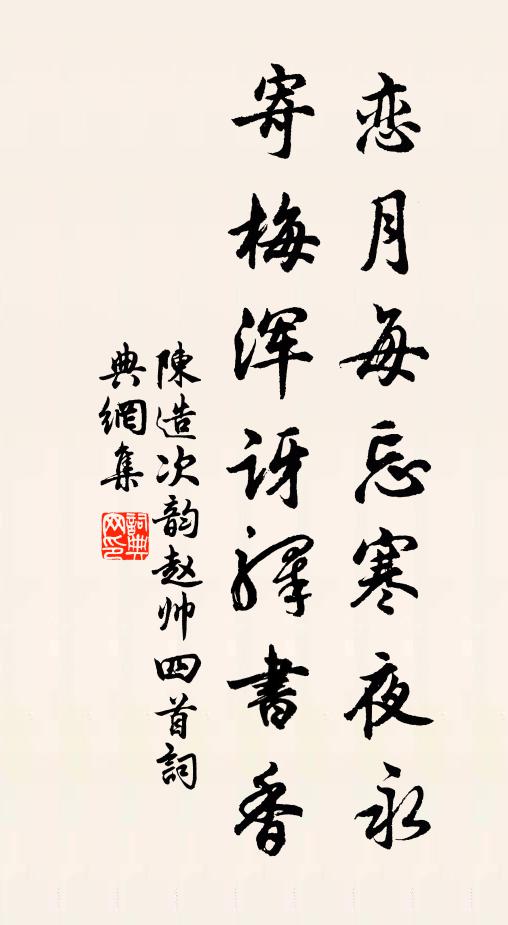 恋月每忘寒夜永
寄梅浑讶驿書香
陳造次韵赵帅四首詞
典網集
詞典网印